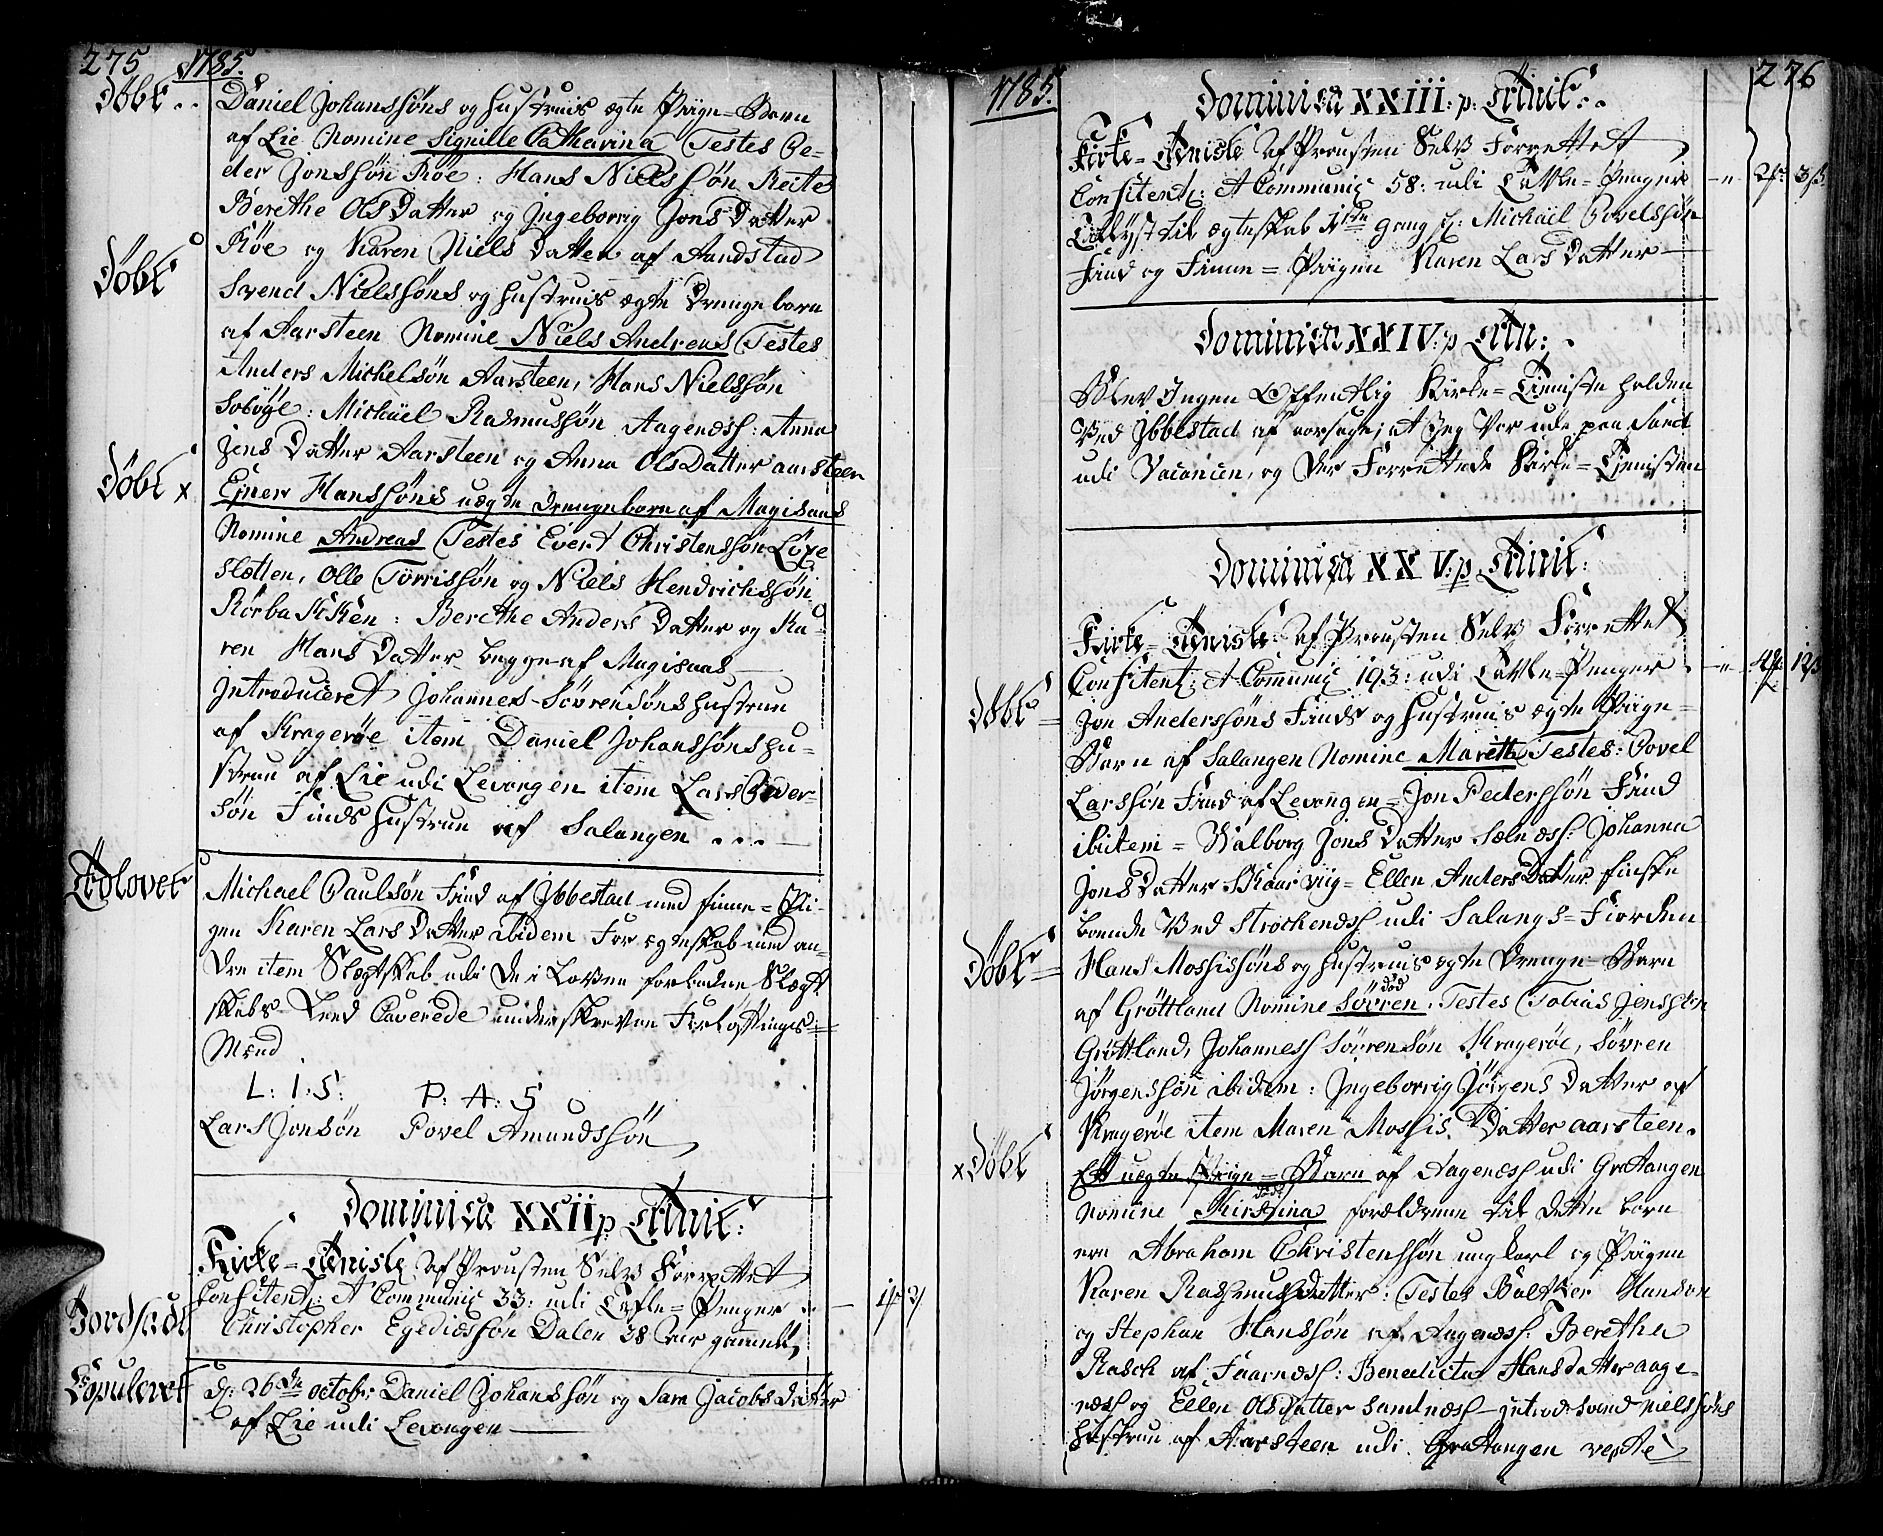 275 1785.
Döbt .. Daniel Johanssöns og Hustruis ægte Piige-Barn
af Lie Nomine Signille Catharina Testes Pe-
der Jonssön Röe: Hans Nielssön Reite
Berethe OlsDatter og Ingeborrig JonsDatter
Röe og Karen NielsDatter af Aandstad
Döbt Svend Nielssöns og Hustruis ægte Drengebarn
af Aarsteen Nomine Niels Andreas Testes
Anders Michelsön Aarsteen, Hans Nielssön
Michäel Rasmussön Aagenæss: Anna
JensDatter Aarsteen og Anna OlsDatter aarsteen
Döbt x Ejner Hanssöns uægte drengebarn af Magisnæs
Nomine Andreas Testes Evert Christenssön Löxe
slætten, Olle Törrissön og Niels Hendrichssön
Rörbakken: Berethe AndersDatter og Ka-
ren HansDatter begge af Magisnæs
Introduceret Johannes Sörrensöns hustrue
af Kragerøe item Daniel Johanssöns hu-
strue af Lie udi Levangen item Lars Peder-
sön Finds Hustrue af Salangen ...
Trolovet Michael Paulsön Find af Ybbestad med finne-Pi-
gen Karen LarsDatter ibidem For egteskab med an-
dre item Slægtskab udi de i Loven forbudne Slægt
skabs Leed Caverede underskrevne Forlöftnings-
Mænd
L: I: S: P: A: S
Lars Jonsön Povel Amundssön
Dominica XXII p. Trinit:
Kirke-Tieniste af Prousten Selv Forrettet
Confitent: et Communic 33: udi Tavle-Penger
Jordfæstet Christopher Egediæssön Dalen 38 Aar gammel,
Copuleret d: 26de octobr: Daniel Johanssön og Sara JacobsDatter
af Lie udi Levangen
1785. 276
Dominica XXIII: p: Trinit:
Kirke-Tieniste af Prousten Selv Forrettet
Confitent: et Communic 58: udi Tavle-Penger 3ß
Tillyst til ægteskab 1ste gang f: Michäel Povelssön
Find og Finne-Piigen Karen LarsDatter
Dominica XXIV p Trin:
Blev Ingen Offentlig Kirke-Tieniste holden
Ved Ybbestad af aarsage, at Jeg Var ude paa Sand
udi Vacancen, og der Forrettede Kirke-Tienisten
Dominica XXV: p. Trinit:
Kirke-Tieniste af Prousten Selv Forrettet
Confitent: et Communic 193: udi Tavle-Penger 12ß
Döbt Jon Anderssöns Finds og Hustruis ægte Piige-
Barn af Salangen Nomine Mareth Testes: Povel
Larssön Find af Levangen-Jon Pederssön Find
ibitem-Valborg JonsDatter Sælnæss: Johanna
JonsDatter Skaarviig-Ellen AndersDatter finske
boende Ved Strochenæss udi Salangs-Fiorden
Döbt Hans Mossissöns og Hustruis ægte Drenge-Barn
död
af Gröttland Nomine Sörren. Testes Tobias Jenssön
Gröttland, Johannes Sörrensön Kragerøe, Sörren
Jörgenssön ibidem: Ingeborrig JörgensDatter af
Kragerøe item Maren MossisDatter aarsteen.
x Döbt Et uægte Piige-Barn af Aagenæss udi Gratangen
död
Nomine Kirstina forældrene til dette barn
ere Abraham Christenssön ungkarl og Piigen
Karen RasmusDatter: Testes Baltzer Hanson
og Stephan Hanssön af Aagenæss: Beretha
Rasch af Faarnæss: Benedicta Hansdatter aage-
næss og Ellen OlsDatter Sandnæss-introd: Svend Nielssöns
Hustrue af Aarsteen udi Gratangen